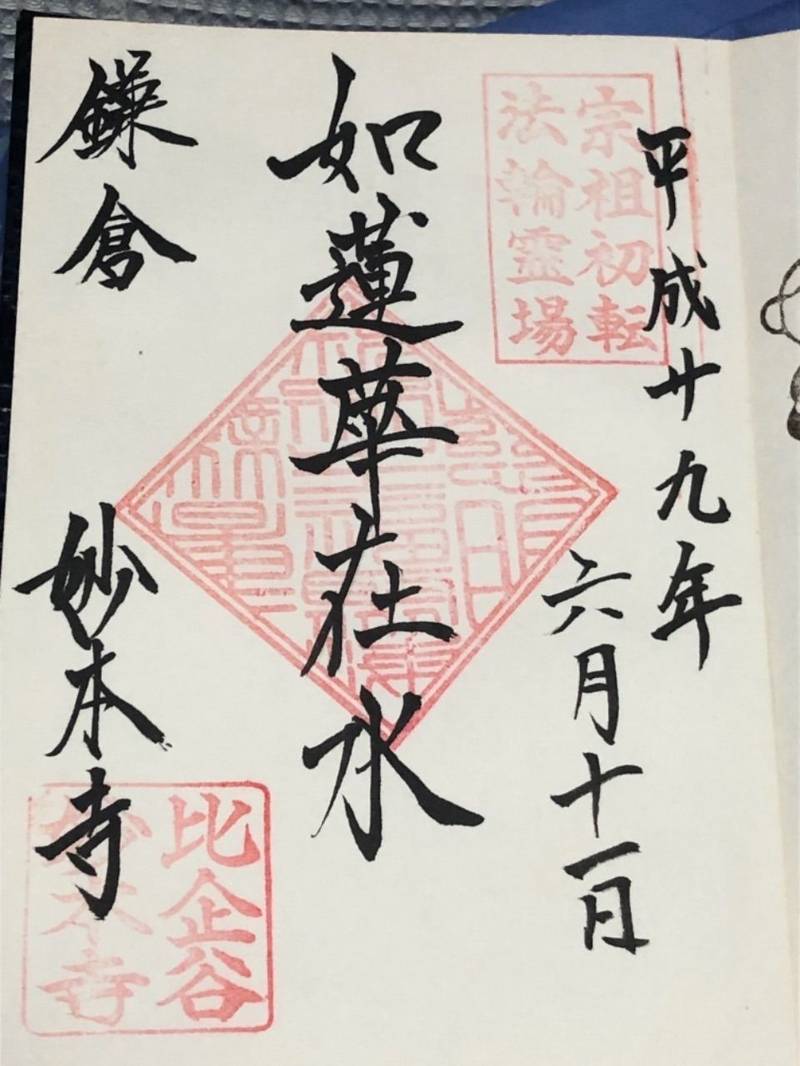 平成廿九年
六月十一日
宗祖初転
法輪霊場
如蓮華在水
鎌倉
妙本寺
比企谷
妙本寺